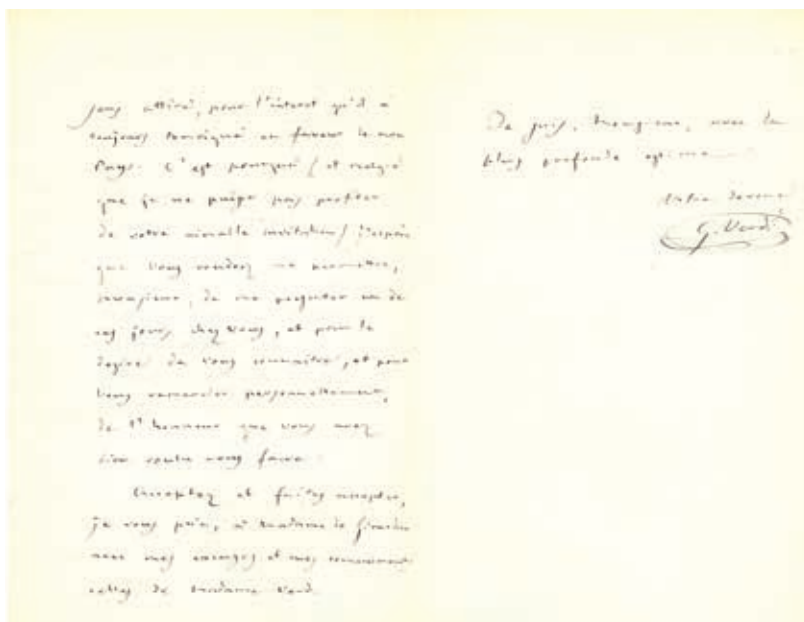 jours attiré, pour l'interet qu'il a
toujours temoigné en faveur de mon
Pays. C'est pourquoi (et malgré
que je ne puisse pas profiter
de votre aimable invitation) j'espère
que vous voudrez me permettre,
monsieur, de me presenter un de
ces jours chez vous, et pour le
desire de vous connaitre, et pour
vous remercier personnellement,
de l'honneur que vous avez
bien voulu nous faire
Acceptez et faites accepter,
je vous prie, à Madame de Girardin
avec mes excuses et mes
celles de Madame Verdi
Je suis, monsieur, avec la
plus profonde estime
Votre
G. Verdi